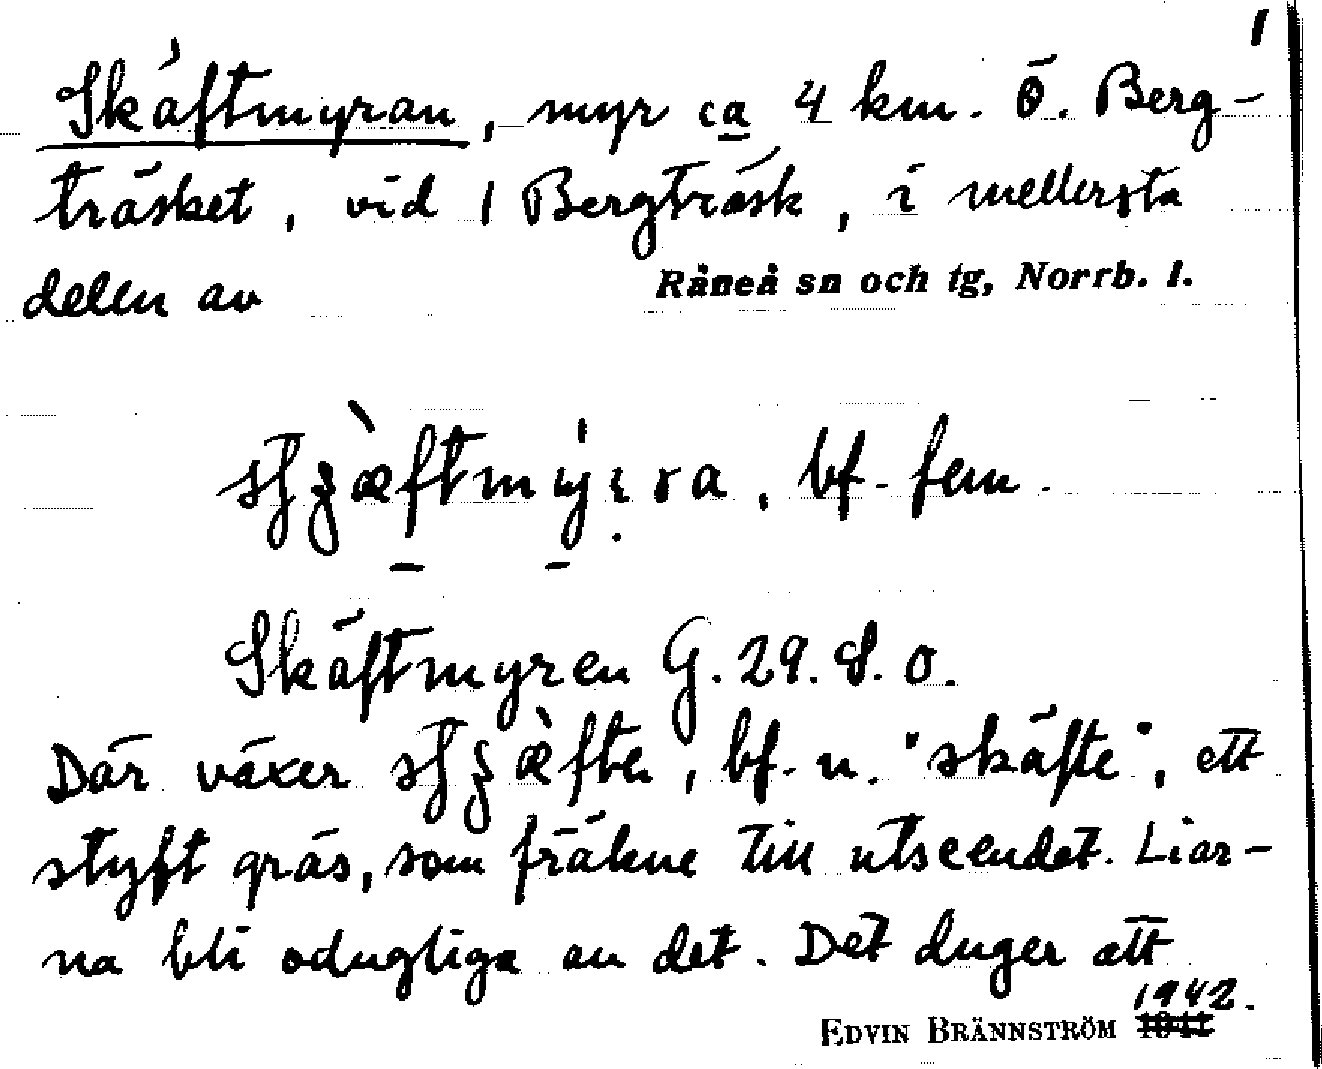 1
Skäftmyran, myr ca 4 km. Ö. Berg-
träsket, vid 1 Bergträsk, i mellersta
delen av Råneå sn och tg, Norrb. l.
bf. fem.
Skäftmyren G. 29. 8. o.
Där växer bf. n. "skäfte", ett
styft gräs, som fräkne till utseendet. Liar-
na bli odugliga av det. Det duger att
1942.
EDVIN BRÄNNSTRÖM 1941